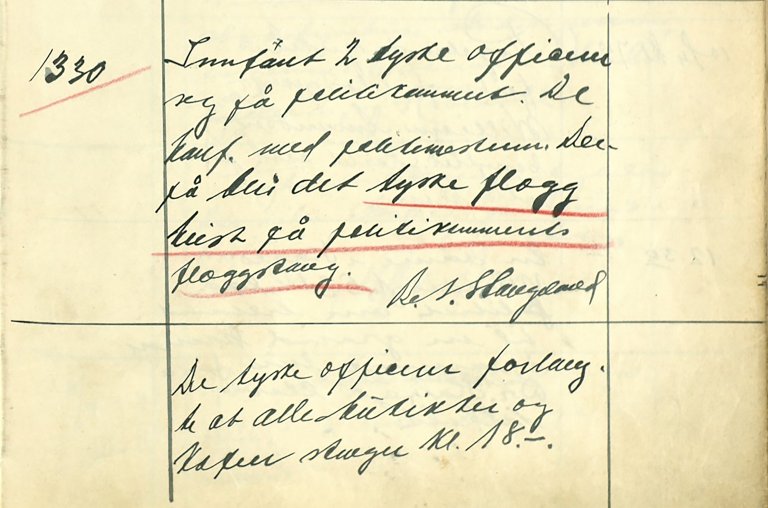 1330
Innfant 2 tyske officerer
seg på politikammeret. De
konf. med politimesteren. Der-
på blei det tyske flagg
heist på politikammerets
flaggstang.
De tyske officerer forlang-
te at alle butikker og
kafeer stenger kl. 18.-.